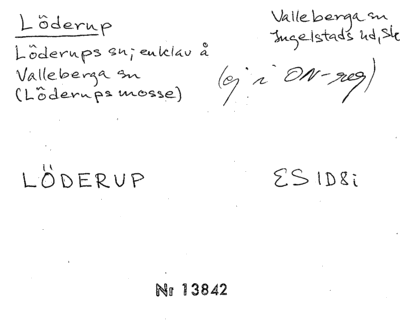 Löderup
Valleberga sn
Ingelstads hd, Sk
Löderups sn; enklav å
Valleberga sn
(Löderups mosse)
(ej i ON-reg)
LÖDERUP
ES 1D8i
Nr 13842